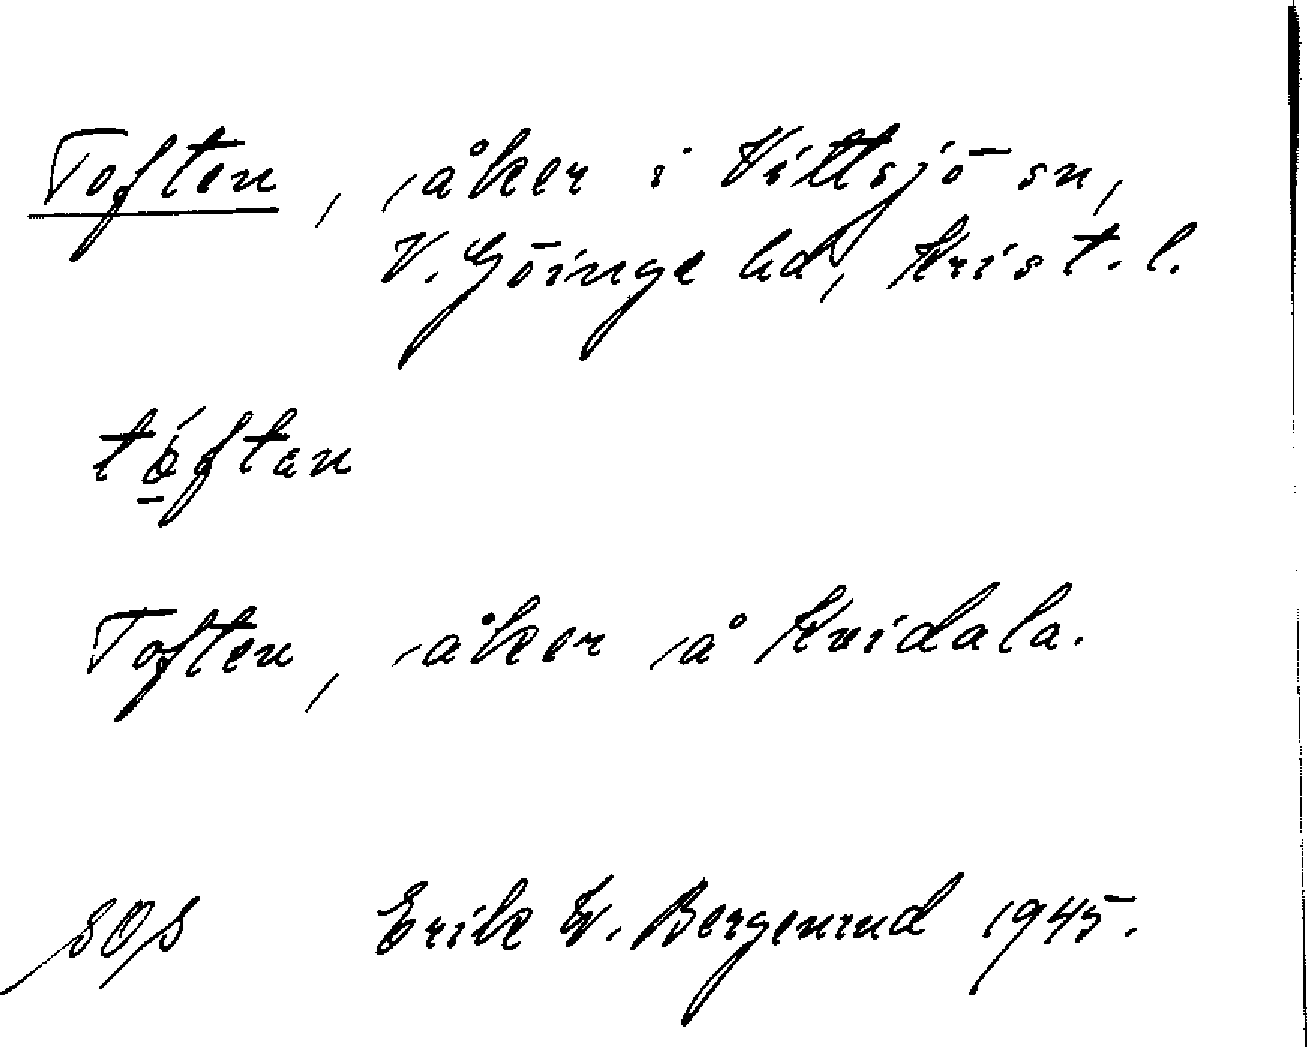 Toften, åker i Vittsjö sn,
V. Göinge hd, Krist. l.
tó̱ftan
Toften, åker å Kvidala.
SOS Erik W. Bergenrud 1945.